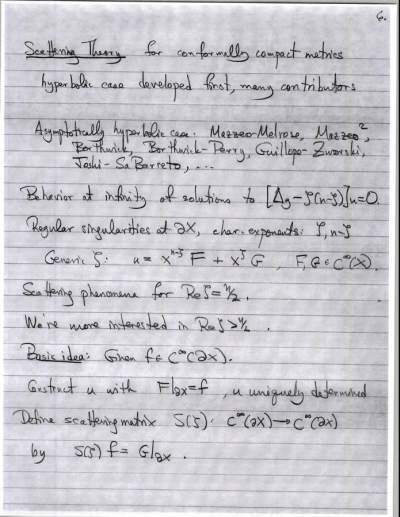 6.
Scattering Theory for conformally compact metrics
hyperbolic case developed first, many contributors
Asymptotically hyperbolic case: Mazzeo-Melrose, Mazzeo²,
Borthwick, Borthwick-Perry, Guillope-Zworski,
Joshi-Sa Barreto, ...
Behavior at infinity of solutions to [Δg-ζ(n-ζ)]u=0.
Regular singularities at ∂X, char. exponents: ζ, n-ζ
Generic ζ: u = x^{n-ζ} F + x^ζ G , F,G ∈ C^∞(X).
Scattering phenomena for Re ζ = n/2.
We're more interested in Re ζ > n/2.
Basic idea: Given f ∈ C^∞(∂X).
Construct u with F|∂X = f , u uniquely determined
Define scattering matrix S(ζ): C^∞(∂X) → C^∞(∂X)
by S(ζ) f = G|∂X .